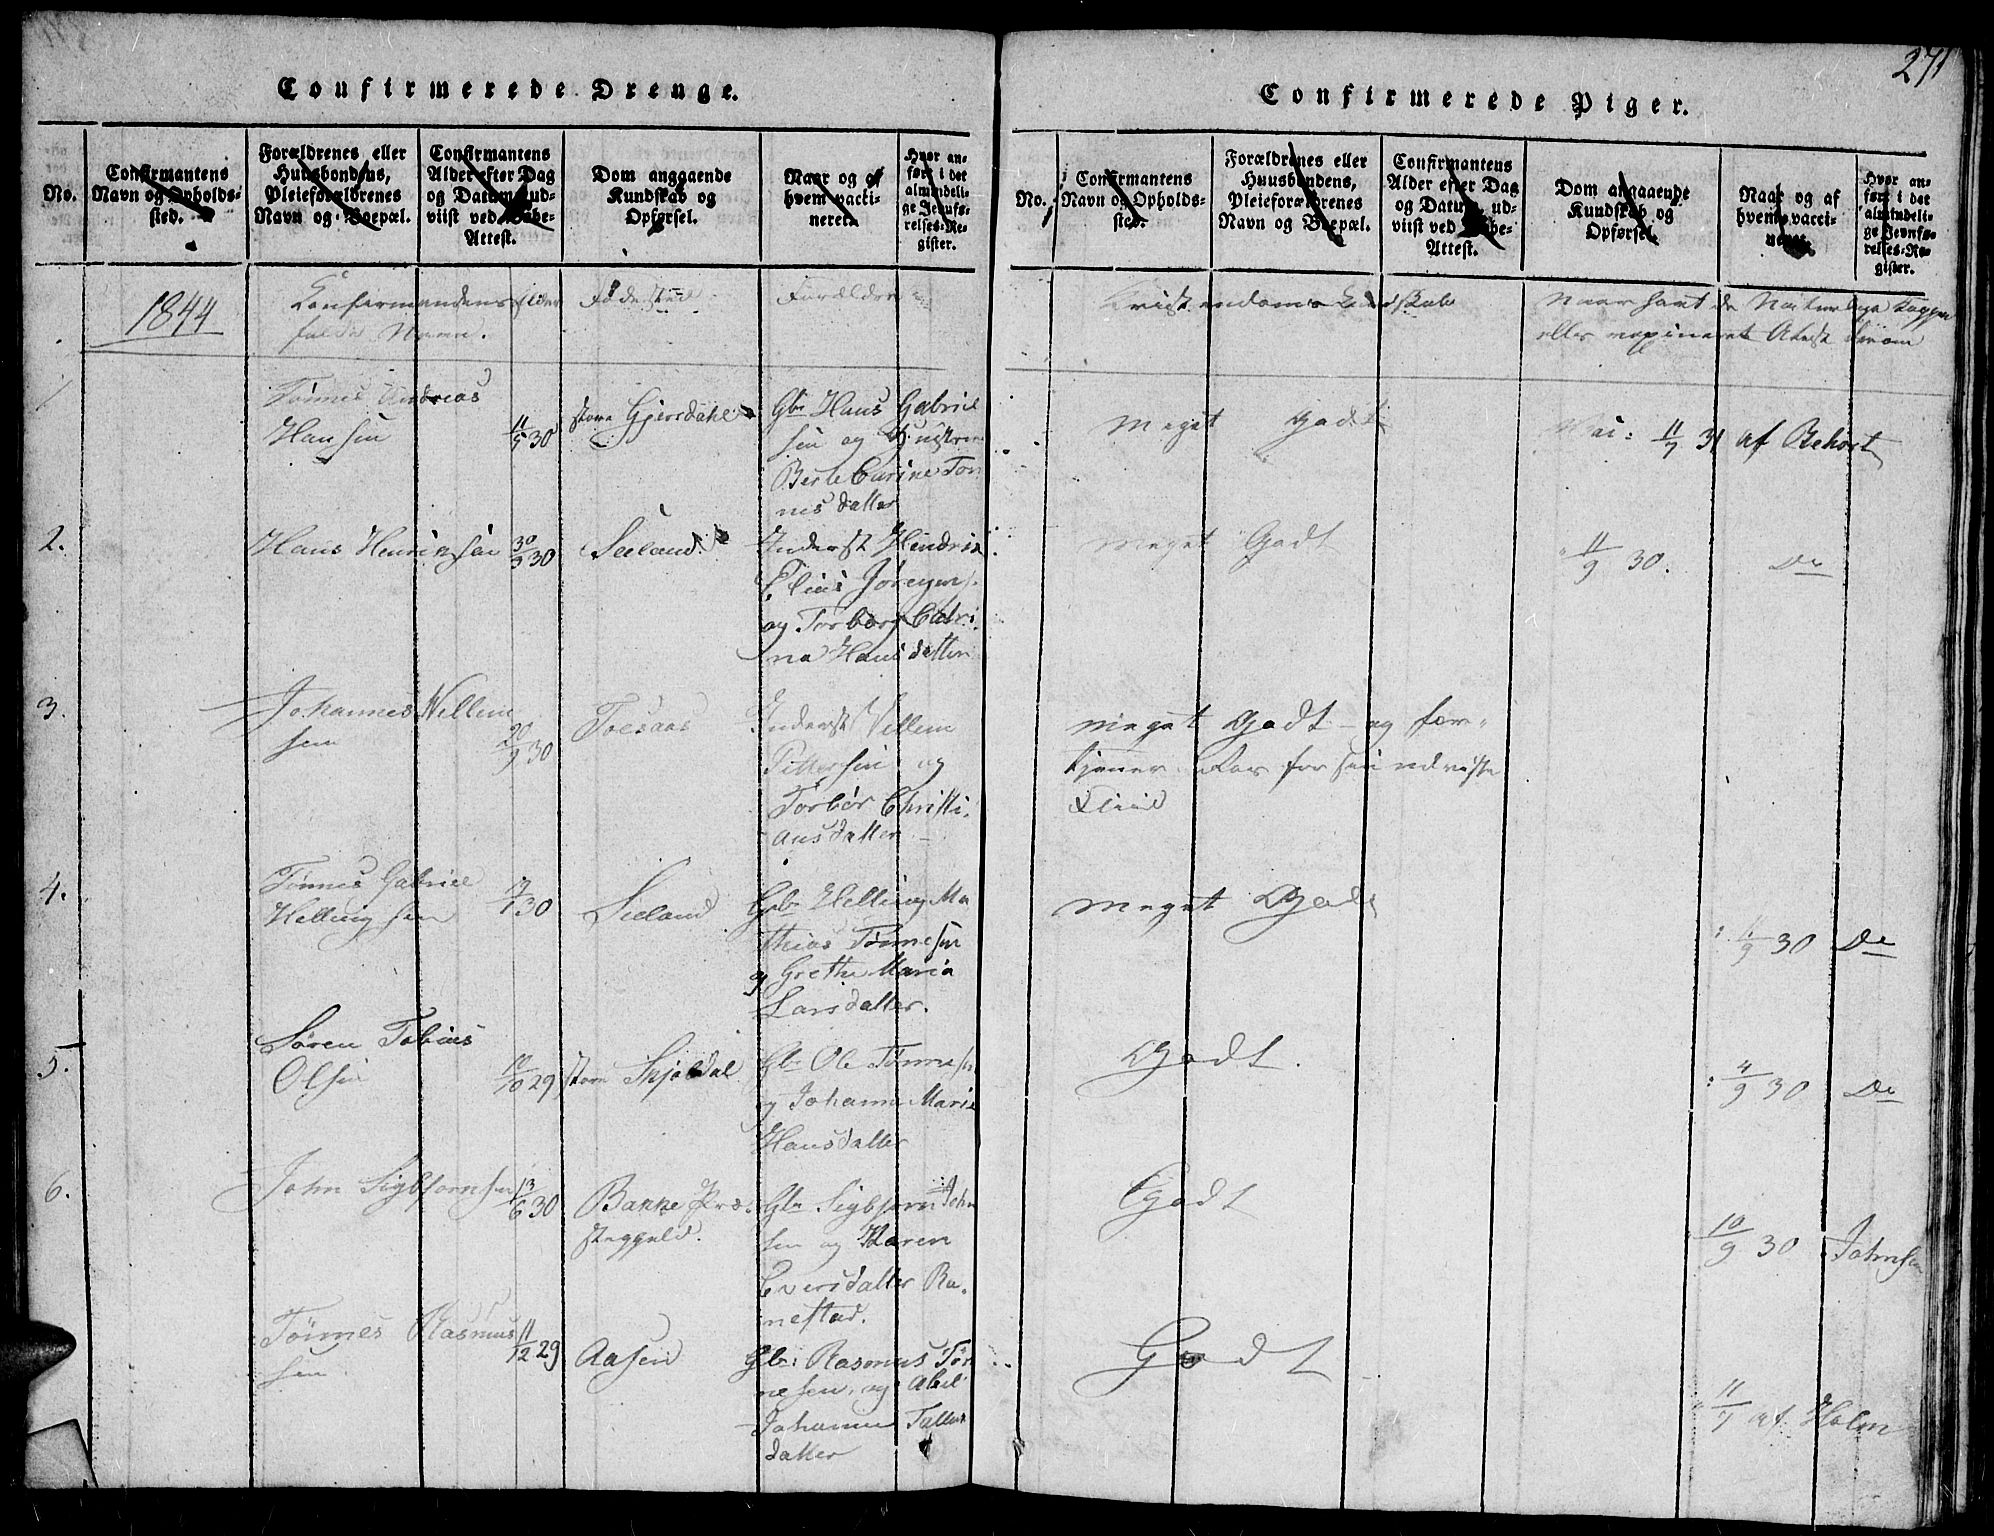 271
Confirmerede Drenge.
No.
Confirmantens
Navn og Opholds-
sted.
Forældrenes eller
Huusbondens,
Pleieforældrenes
Navn og Boepæl.
Confirmantens
Alder efter Dag
og Datum ud-
viist ved Døbe-
Attest.
Dom angaaende
Kundskab og
Opførsel.
Naar og af
hvem vacci-
neret.
Hvor an-
ført i det
almindeli-
ge Jevnfø-
relses-Re-
gister.
1844
Confirmandens
fulde Navn.
Fødested
Forældre
1
Tønnes Andreas
Hansen
11/5 30
store Gjersdahl
Gbr Hans Gabriel
sen og Hustrue
Berte Carine Ton
nes datter
2.
Hans Henriksen
30/3 30
Seeland
Inderst Hendrik
Elias Jørgens.
og Torborg Catri
na Hansdatter
3.
Johannes Willem
sen
20/9 30
Toesaas
Inderst Villem
Pettersen og
Torbor Christi
ansdatter
4.
Tønnes Gabriel
Hellingsen
30
Seeland
Gbr Helling Ma
thias Tønnesen
og Grethe Maria
Larsdatter.
5.
Søren Tobias
Olsen
10/10 29
store Skjeldal
Gbr Ole Tønnesen
og Johanne Marie
Hansdatter
6.
John Sigbjørnsen
13/6 30
Bakke Præ-
steggeld.
Gbr Sigbjørn John
sen og Karen
Eversdatter Ra-
nestad.
Tønnes Rasmus
sen
11/12 29
Aasen
Gbr: Rasmus Tøn
nesen, og Abel
Johanne Tallaks
datter
Confirmerede Piger.
No.
Confirmantens
Navn og Opholds-
sted.
Forældrenes eller
Huusbondens,
Pleieforældrenes
Navn og Boepæl.
Confirmantens
Alder efter Dag
og Datum ud-
viist ved Døbe-
Attest.
Dom angaaende
Kundskab og
Opførsel.
Naar og af
hvem vacci-
neret.
Hvor an-
ført i det
almindeli-
ge Jevnfø-
relses-Re-
gister.
Kristendoms Kundskab
Naar havt de Naturlige Kopper
eller vaxineret Atest derom
Meget Godt
11/7 31 af Behort
Meget Godt
11/9 30. Do
Meget Godt og for-
tjener Roes for sin udviste
Fliid
Meget Godt
11/9 30 Do
Godt.
4/9 30 Do
Godt
10/9 30 Johnsen
Godt
11/7 af Holm